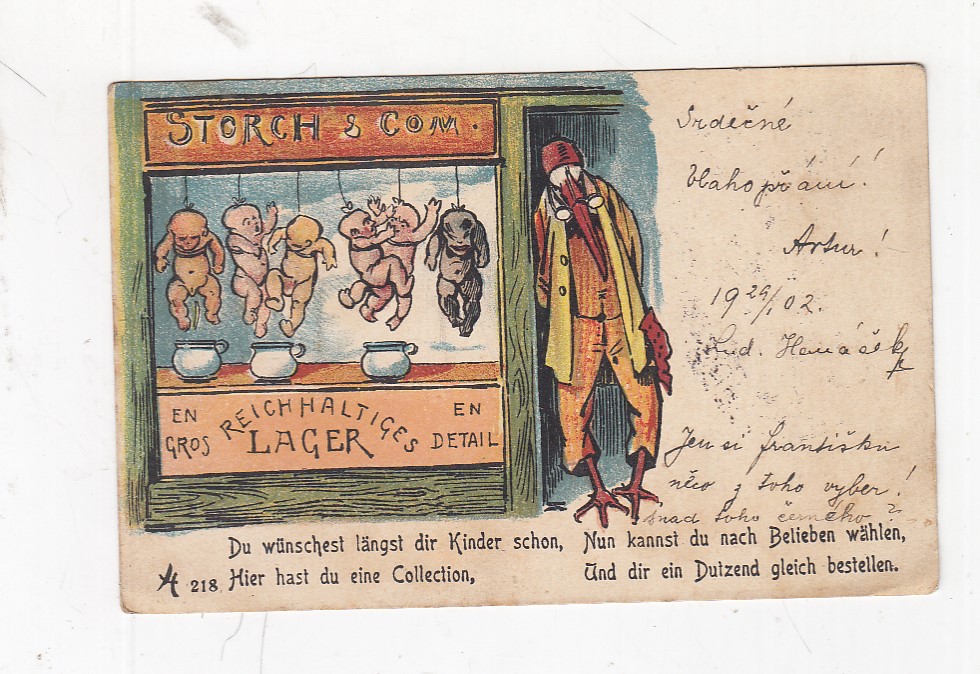 STORCH & COM.
EN GROS
REICHHALTIGES
LAGER
EN DETAIL
Srdečné
blahopřání!
Artur!
19 29/1 02.
Lud.
Jen si Františku
něco z toho vyber!
snad toho černého?
Du wünschest längst dir Kinder schon,
Hier hast du eine Collection,
Nun kannst du nach Belieben wählen,
Und dir ein Dutzend gleich bestellen.
218